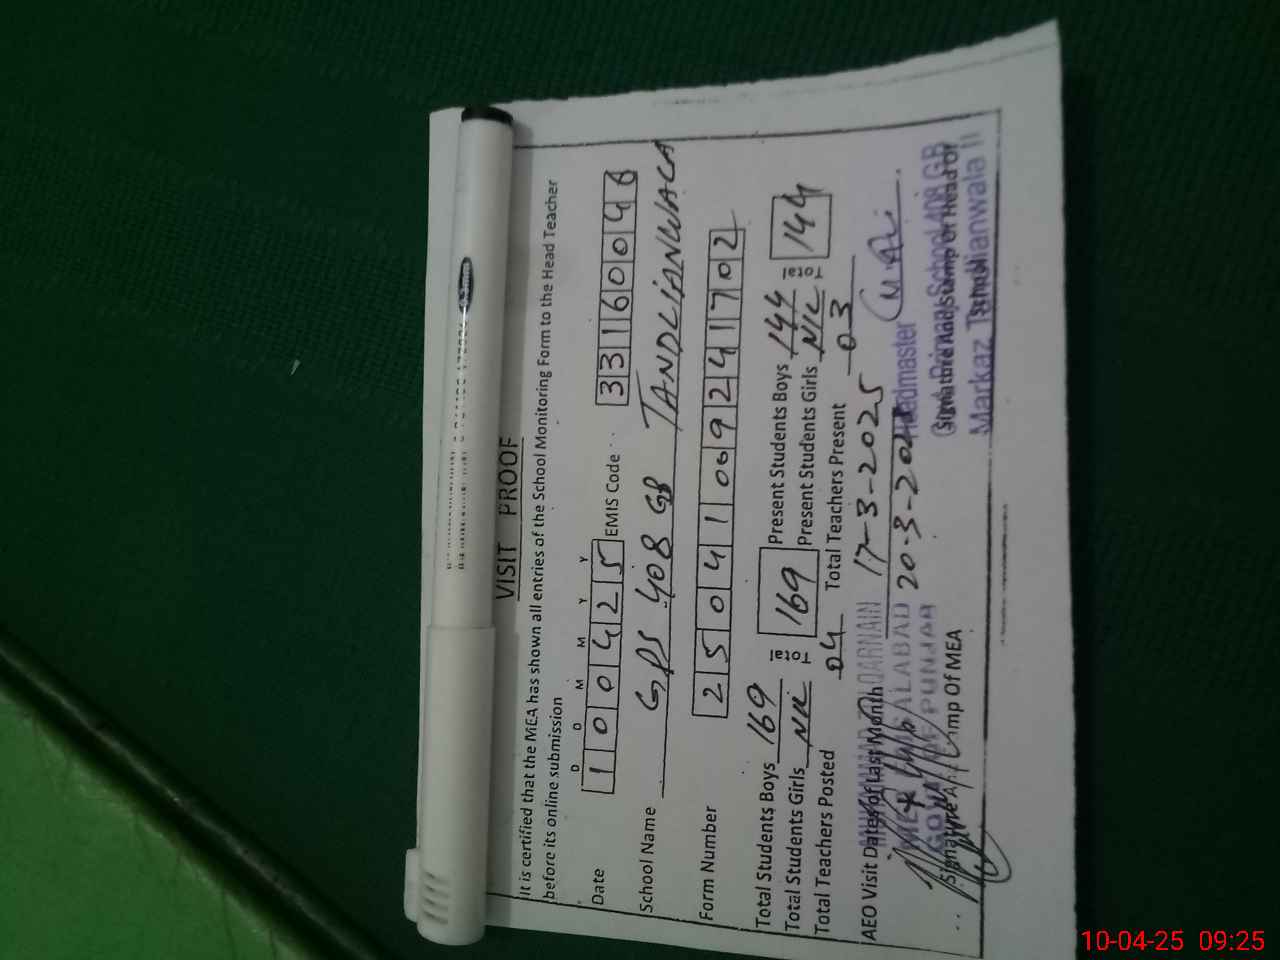 VISIT PROOF
It is certified that the MEA has shown all entries of the School Monitoring Form to the Head Teacher
before its online submission
D D M M Y Y
Date 1 0 0 4 2 5 EMIS Code 3 3 1 6 0 0 4 6
School Name GPS 408 GB TANDLIANWALA
Form Number 2 5 0 4 1 1 0 6 9 2 4 1 7 0 2
Total Students Boys 169 Total 169 Present Students Boys 144 Total 144
Total Students Girls Nil Present Students Girls Nil
Total Teachers Posted 04 Total Teachers Present 03
AEO Visit Dates of Last Month 17-3-2025
20-3-2025
Headmaster
Govt. Primary School 408 GB
Markaz Tandlianwala II
MEA FAISALABAD
GOVT OF PUNJAB
Signature & Stamp Of MEA
Signature and stamp of Head of
School
10-04-25 09:25